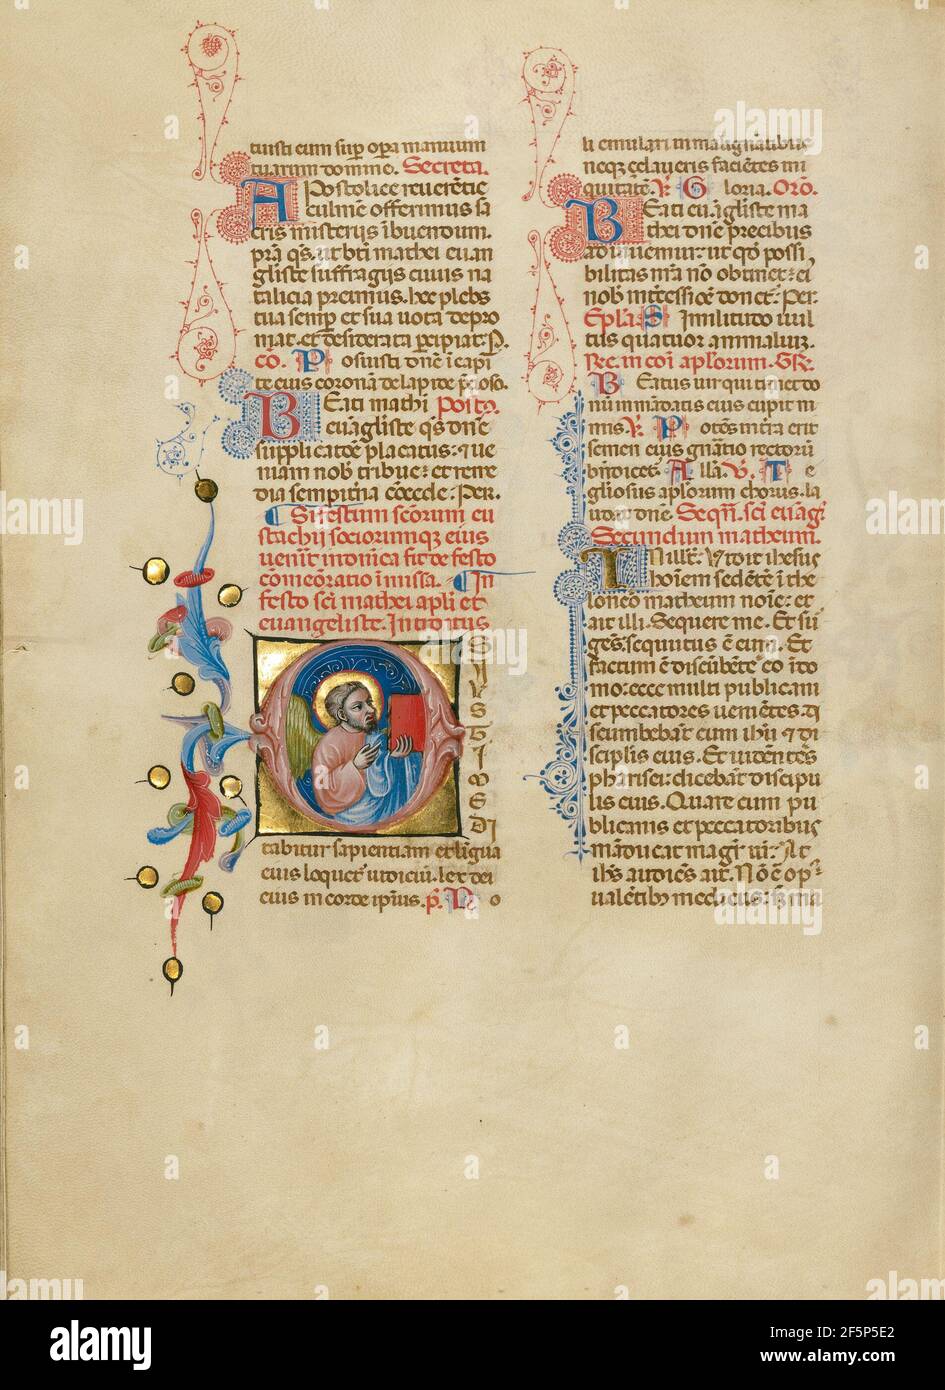 tuisti eum sup̄ opa manuum
tuarum domine. Secreta.
Apostolice reuerentie
culmē offerimus sa
cris misterijs ībuendum.
p̄ra q̄s. ut bt̄i mathei euan
gliste suffragijs cuius na
talicia p̄remus. hec plebs
tua semp̄ et sua uota depro
mat. et desiderata p̄cipiat. P̄.
Cō. Posuisti dn̄e ī capi
te eius coronā de lapide p̄cioso.
Beati mathei Poīto.
euāgliste q̄s dn̄e
supplicatōe placatus: et ue
niam nob̄ tribue: et reme
dia sempit̄na cōcede: Per.
Si festum scōrum eu
stachij sociorumque eius
uenit̄ in dnica fit de festo
comeōratio in missa. In
festo sc̄i mathei apl̄i et
euangeliste. Introitus
OS IUSTI MEDI
tabitur sapientiam et līgua
eius loquet̄ iudiciū. lex dei
eius in corde ip̄ius. p̄. No
li emulari in malignātibus
neq̄ȝ çelaueris faciētes ini
quitatē. V̄. Gloria. Orō.
Beati euāgliste ma
thei dn̄e precibus
adiuuemur: ut qd̄ possi
bilitas nr̄a nō obtinet: ei
nob̄ int̄cessiōe donet̄. Per.
Ep̄la. Similitudo uul
tus quatuor animaliuȝ.
Re. in cōi aplorum. GR.
Beatus uir qui timet do
nū in mādatis eius cupit ni
mis. V̄. Potēs in t̄ra erit
semen eius gn̄atio rectorū
bn̄dicet̄. Allā. V̄. Te
gliosus aplorum chorus. la
udat dn̄e. Seqn̄. sc̄i euāgl̄
Secundum matheum.
In ill̄. t̄. Vidit ihesus
hoīem sedētē ī the
loneo matheum noīe: et
ait illi. Sequere me. Et sur
gēs, sequutus ē eum. Et
factum ē discūbēte eo ī do
mo: ecce multi publicani
et peccatores uenietēs. di
scumbebāt cum ihū et di
scipulis eius. Et uidentēs
pharisei: dicebāt discipu
lis eius. Quare cum pu
blicanis et peccatoribus
māducat magr̄ ur̄i: At
ihs̄ audiēs ait. Nō ē op̄
ualentib; medicus: s̄ ma
alamy
Image ID: 2F5P5E2
www.alamy.com